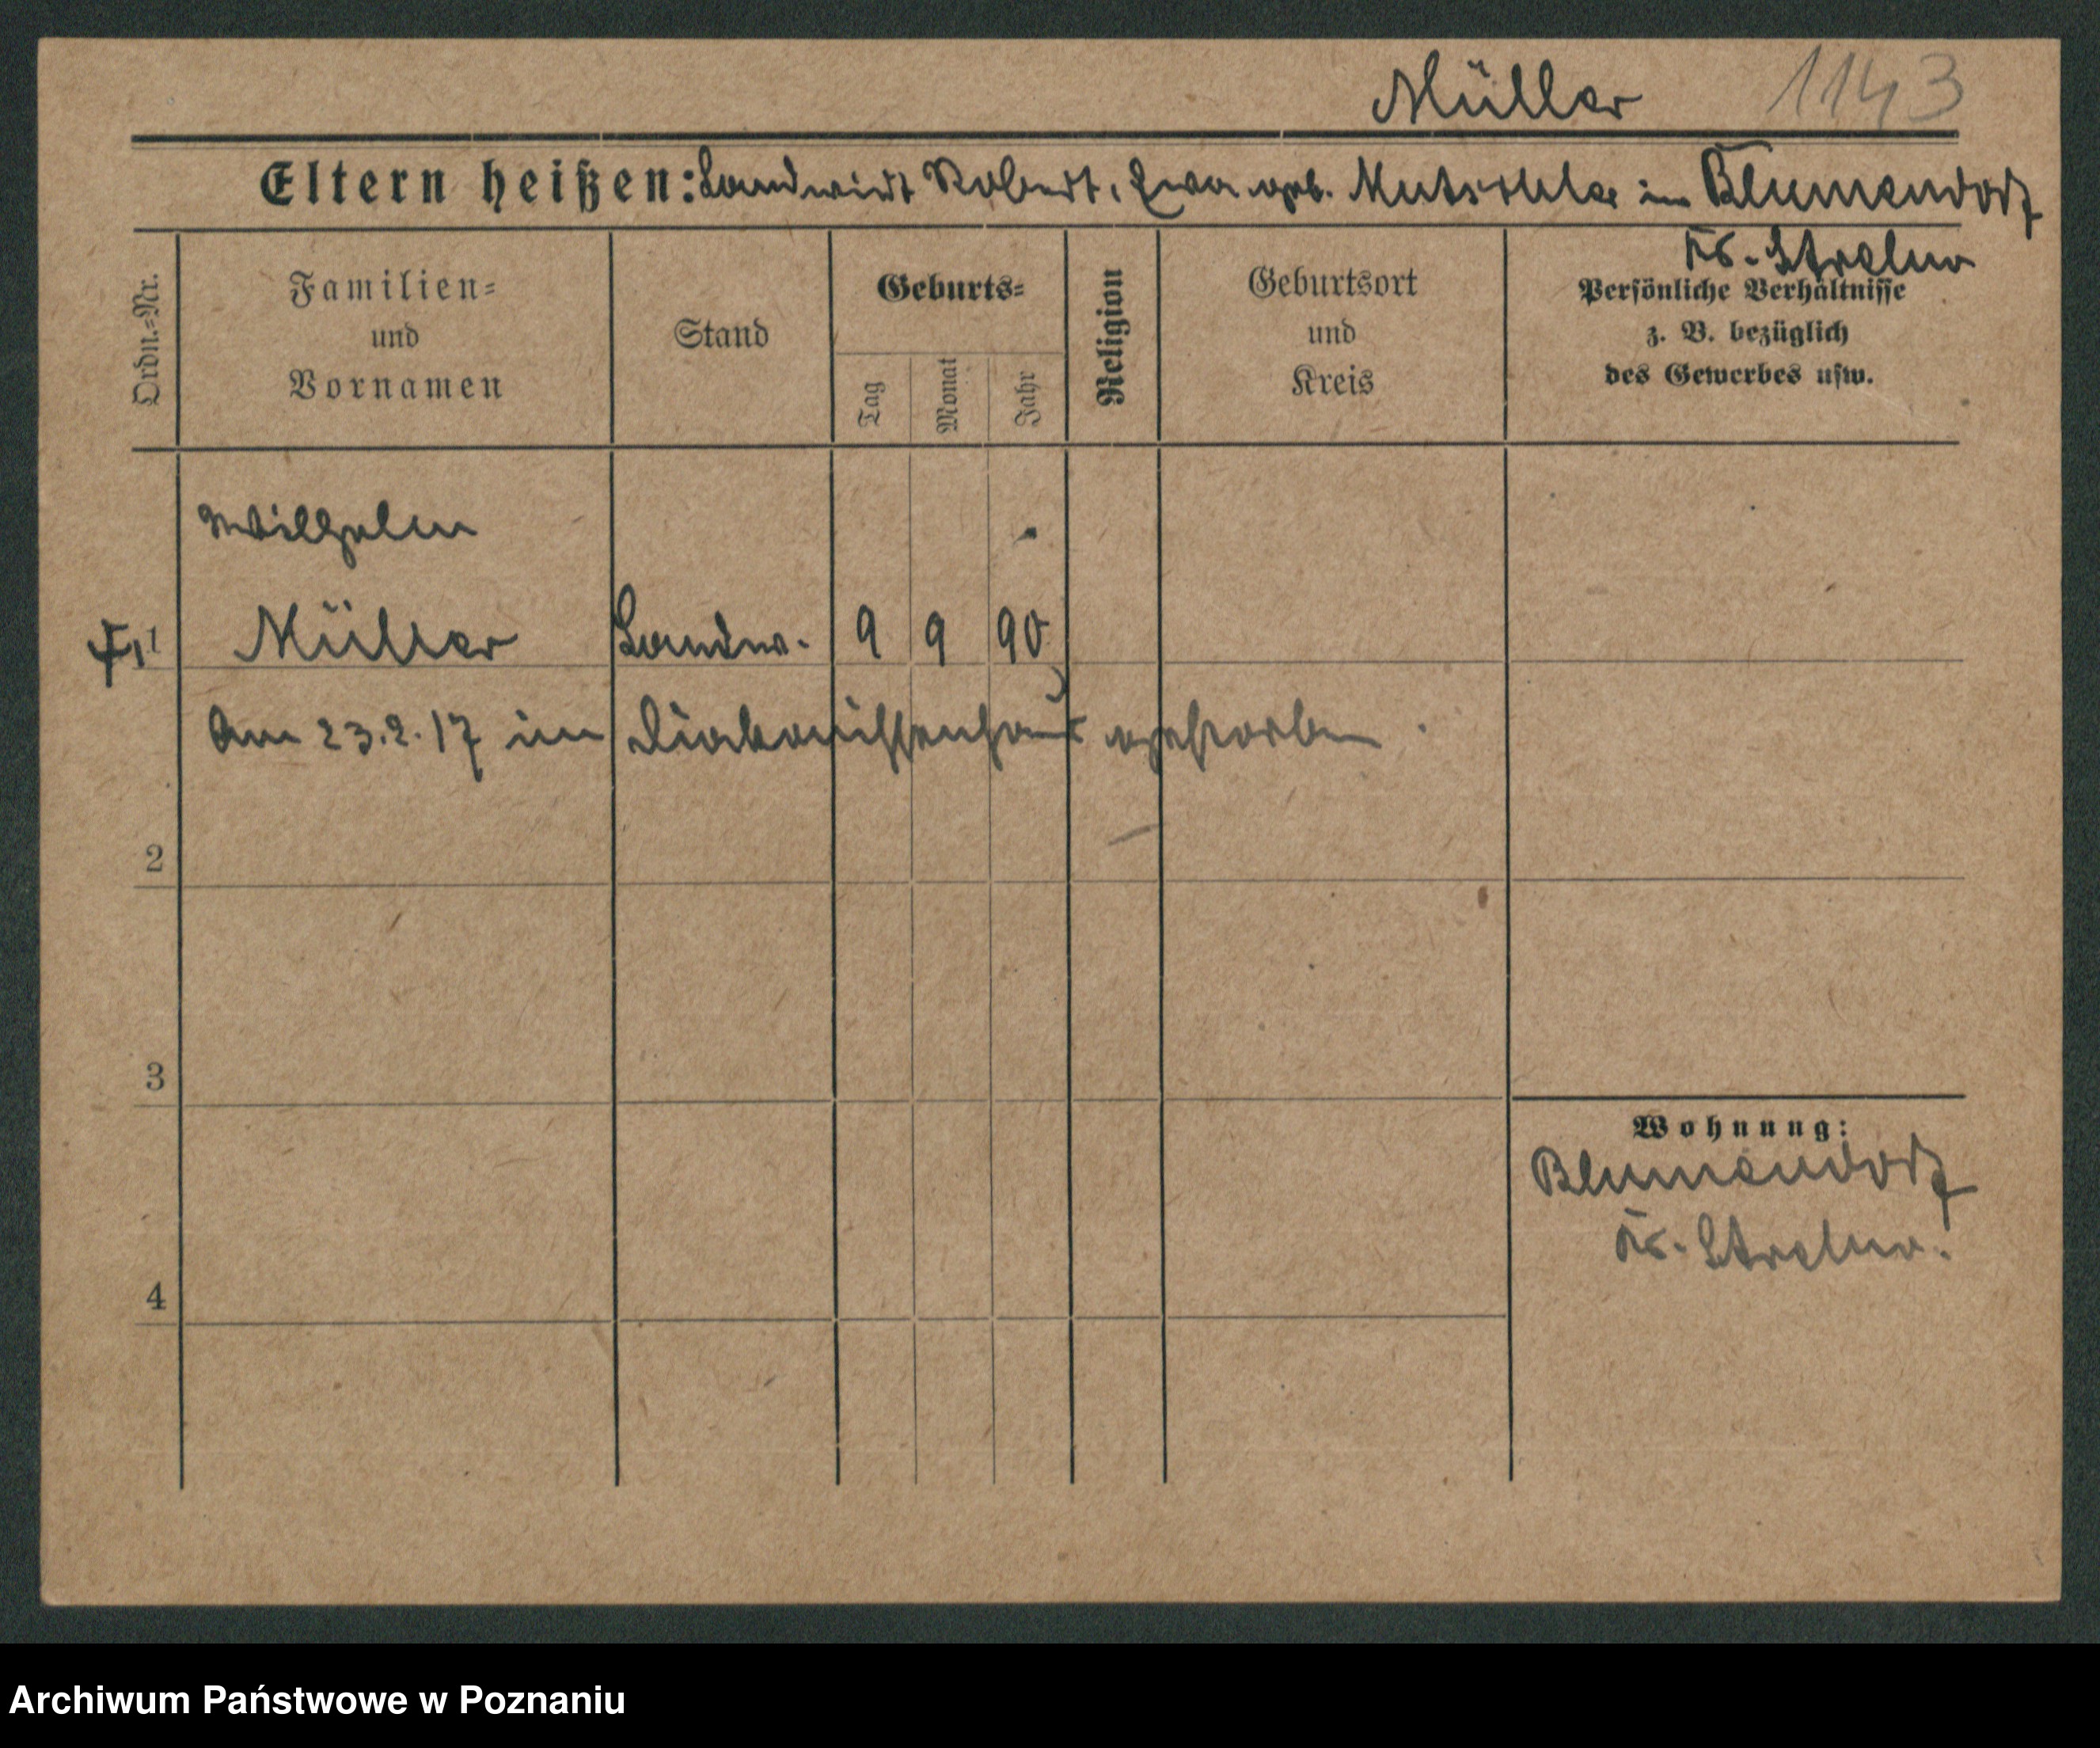 Müller 1143
Eltern heißen: Landwirt Robert, Eva geb. Mutschler in Blumendorf
Kr. Strelno
Ordn.=Nr.
Familien=
und
Vornamen
Stand
Geburts=
Tag
Monat
Jahr
Religion
Geburtsort
und
Kreis
Persönliche Verhältnisse
z. B. bezüglich
des Gewerbes usw.
Wilhelm
1 Müller Landw. 9 9 90
Am 23.2.17 im Diakonissenhaus gestorben.
2
3
Wohnung:
Blumendorf
Kr. Strelno.
4
Archiwum Państwowe w Poznaniu